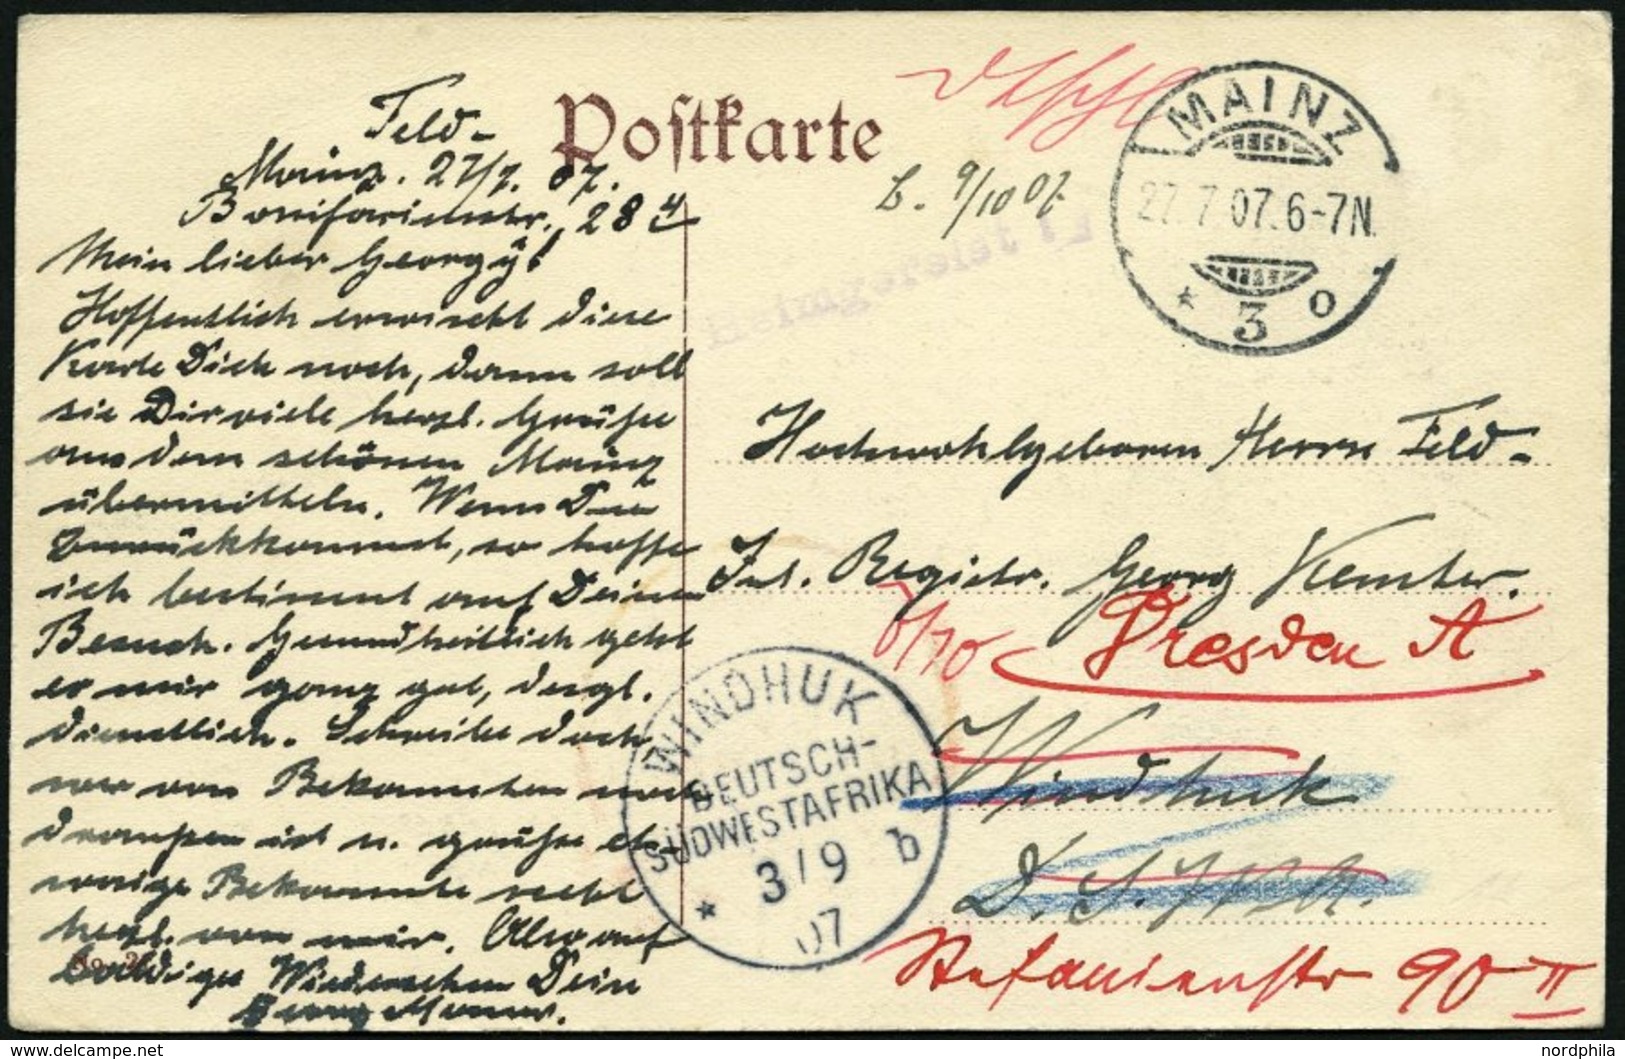 Postkarte
Feld-
Mainz. 27/7. 07.
Bonifaziusstr. 28 4
Mein lieber Georgy!
Hoffentlich erwischt diese
Karte Dich noch, dann soll
sie Dir viele herzl. Grüße
aus dem schönen Mainz
übermitteln. Wenn Du
zurückkommst, so hoffe
ich bestimmt auf Deinen
Besuch. Gesundheitlich geht
es mir ganz gut, desgl.
dienstlich. Schreibe doch
wer von Bekannten noch
draußen ist u. grüße et-
waige Bekannte recht
herzl. von mir. Also auf
baldiges Wiedersehen Dein
Georg
9/10 07.
heimgereist
MAINZ
27.7.07.6-7N.
* 3 o
Hochwohlgeboren Herrn Feld-
Int. Registr. Georg Kemter.
6/10 Dresden A
Windhuk
D. S. W. A.
Stefanienstr 90 II
WINDHUK
DEUTSCH-
SÜDWESTAFRIKA
* 3/9 b
07
delcampe.net
nordphila